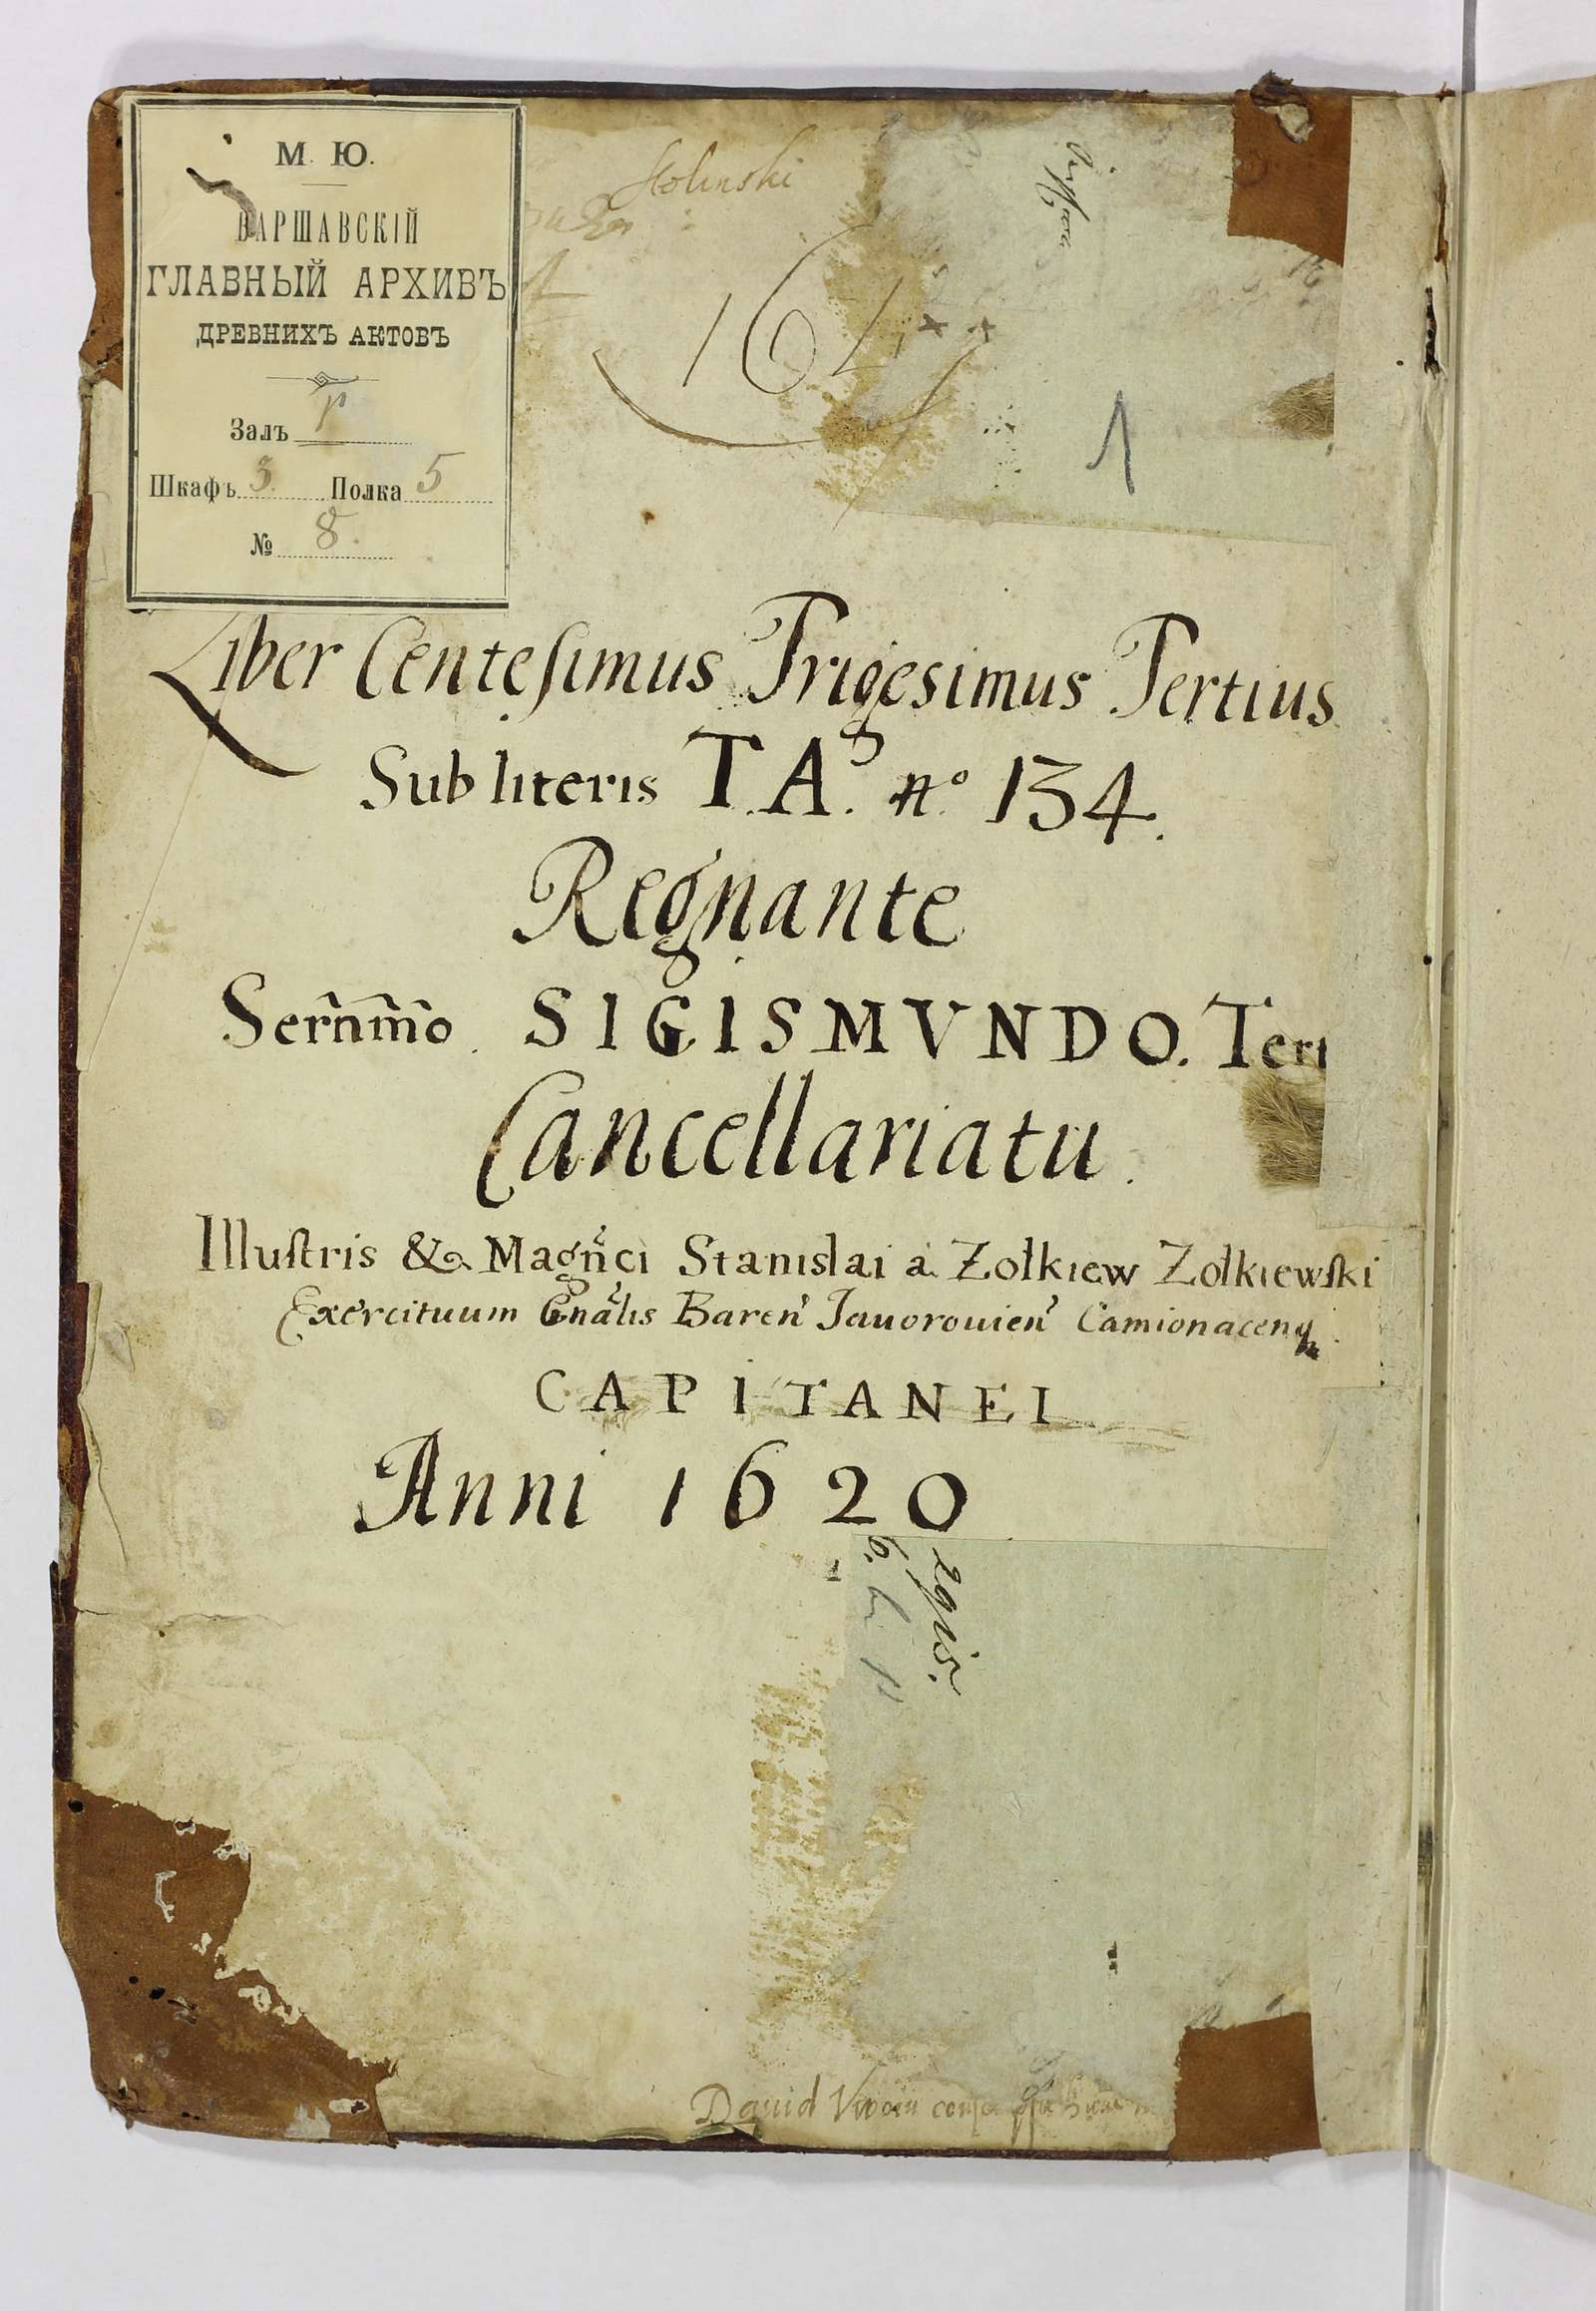 М. Ю.
ВАРШАВСКІЙ
ГЛАВНЫЙ АРХИВЪ
ДРЕВНИХЪ АКТОВЪ
Залъ
Шкафъ 3. Полка 5
№ 8.
1
Liber Centesimus Trigesimus Tertius
Sub literis T.A. nº 134.
Regnante
Serñm̃o. SIGISMVNDO. Tert
Cancellariatu.
Illustris & Magñci Stanislai à Zołkiew Zołkiewski
Exercituum Gnãlis Bareñ Jauorouieñ Camionacenq
CAPITANEI
Anni 1620
egis.
David